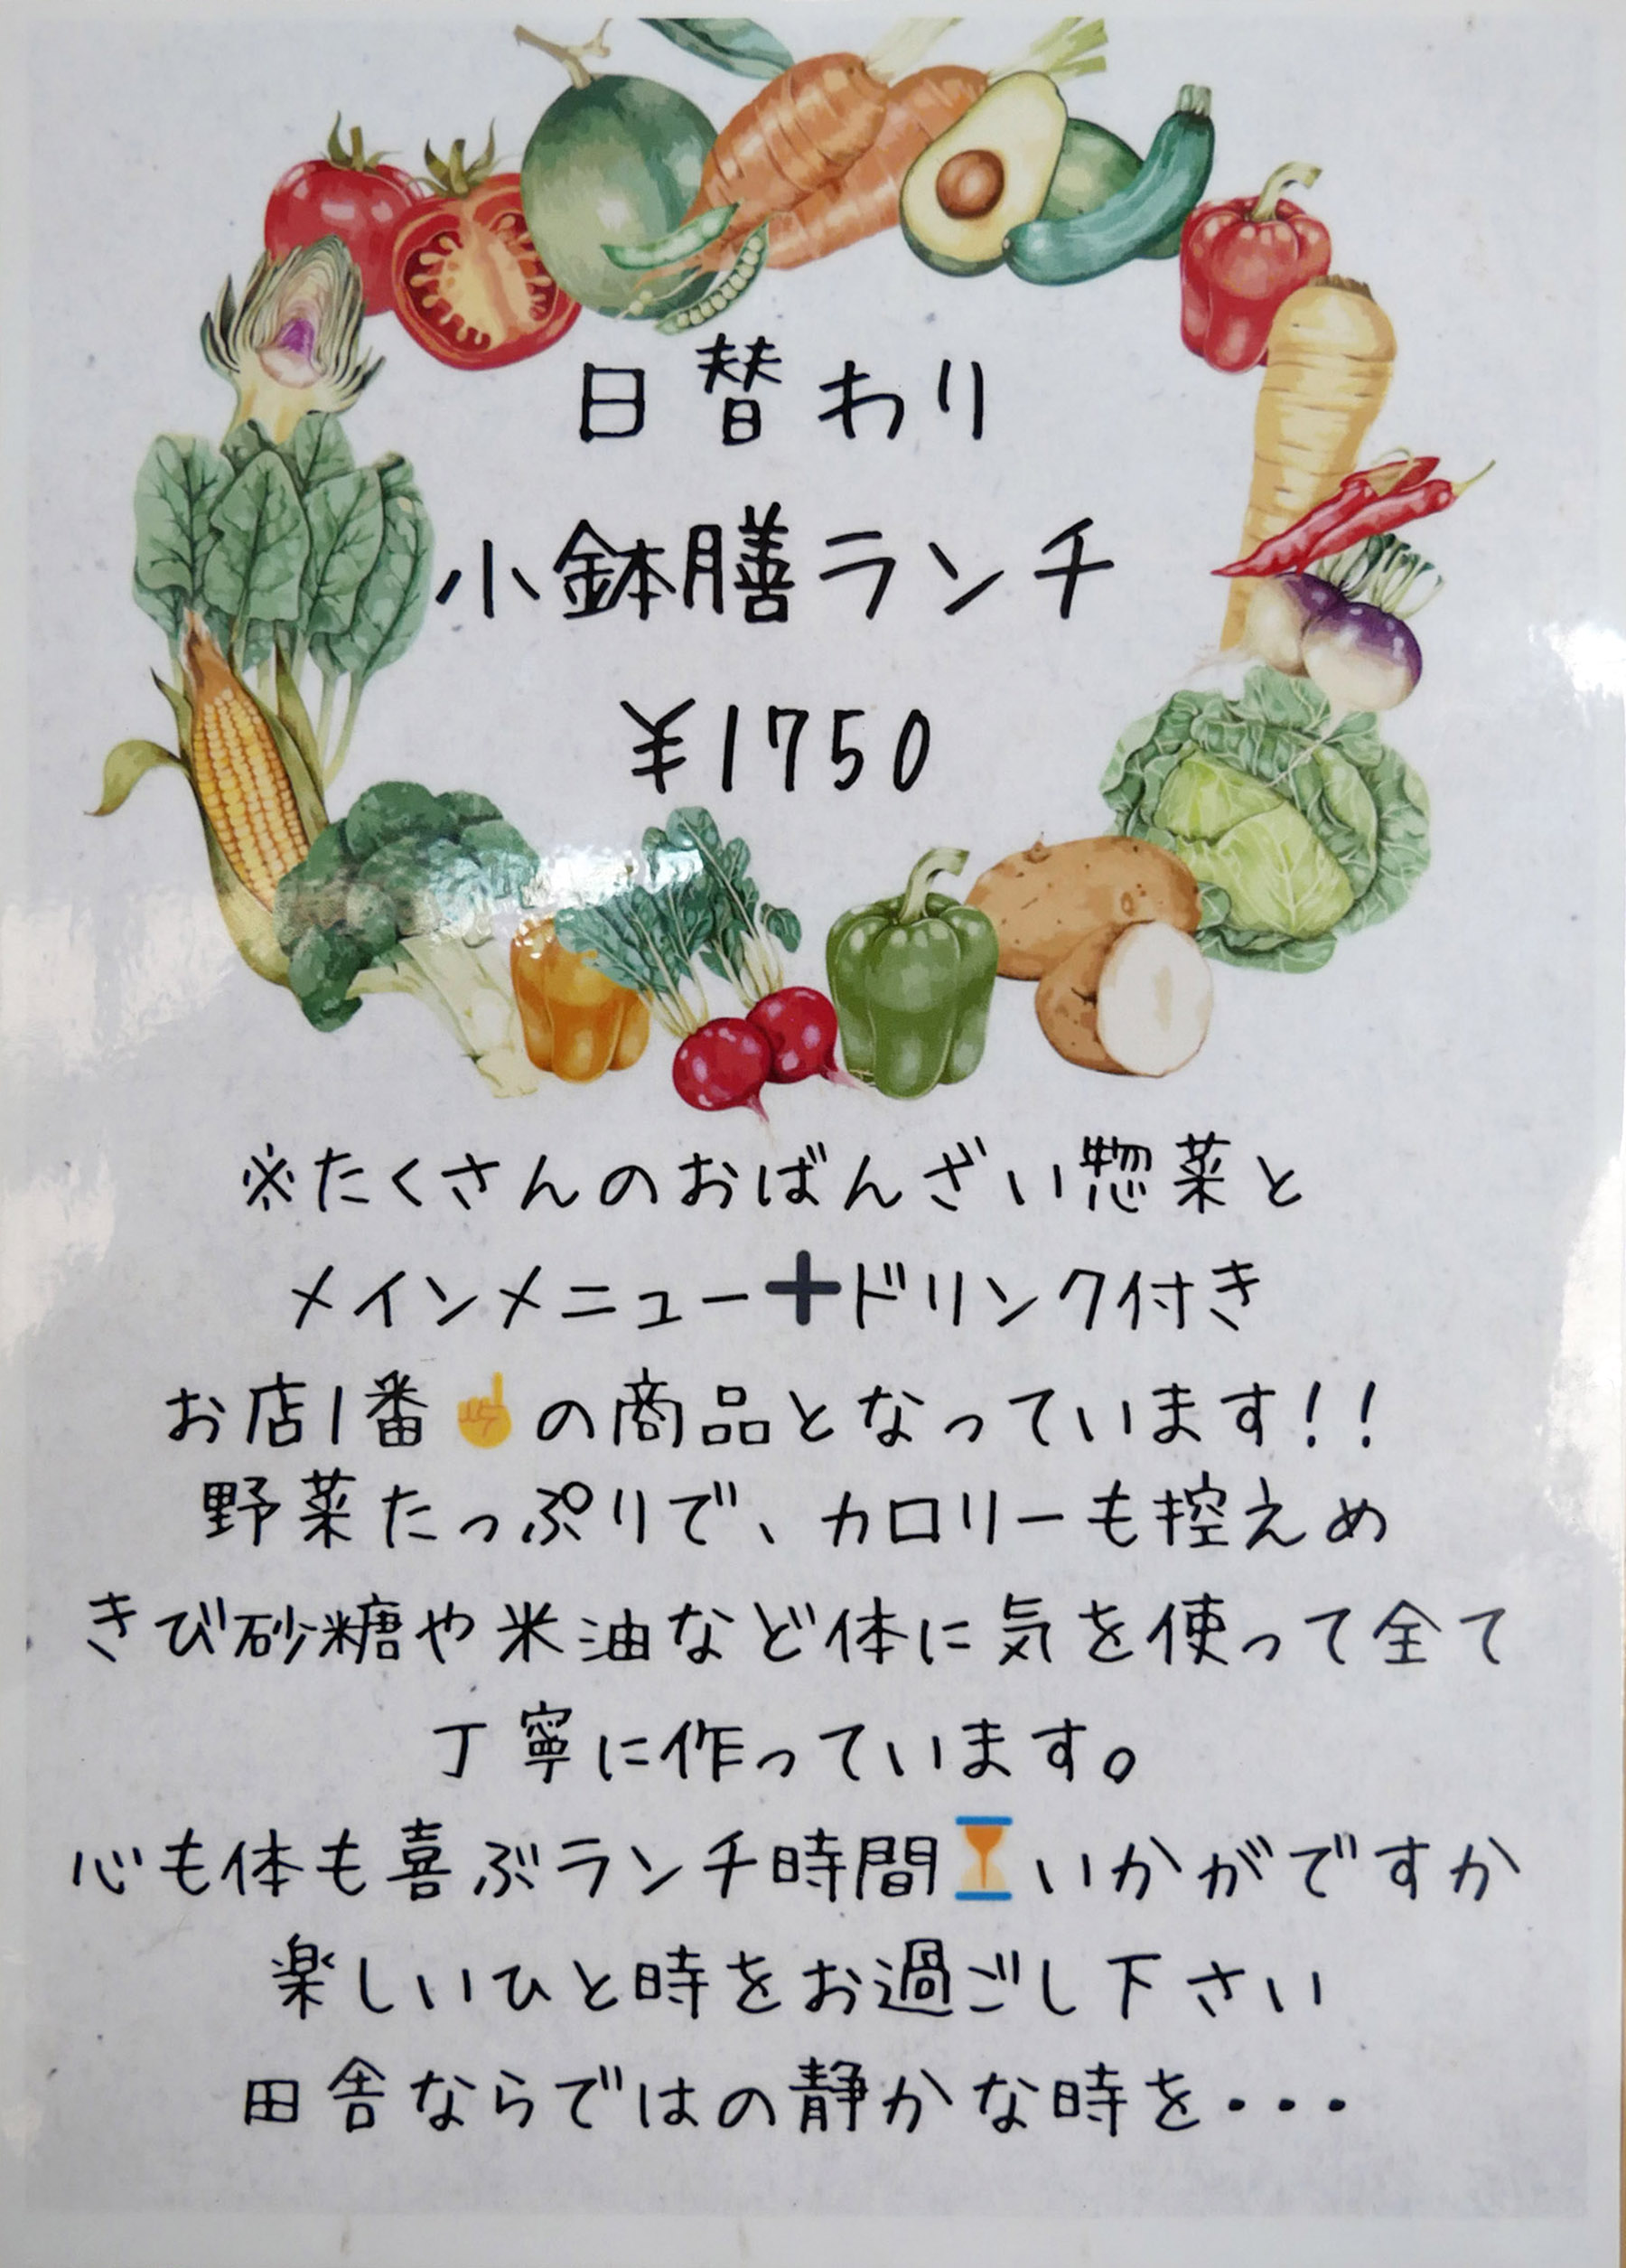 日替わり
小鉢膳ランチ
¥1750
※たくさんのおばんざい惣菜と
メインメニュー➕ドリンク付き
お店1番☝の商品となっています!!
野菜たっぷりで、カロリーも控えめ
きび砂糖や米油など体に気を使って全て
丁寧に作っています。
心も体も喜ぶランチ時間⏳いかがですか
楽しいひと時をお過ごし下さい
田舎ならではの静かな時を・・・